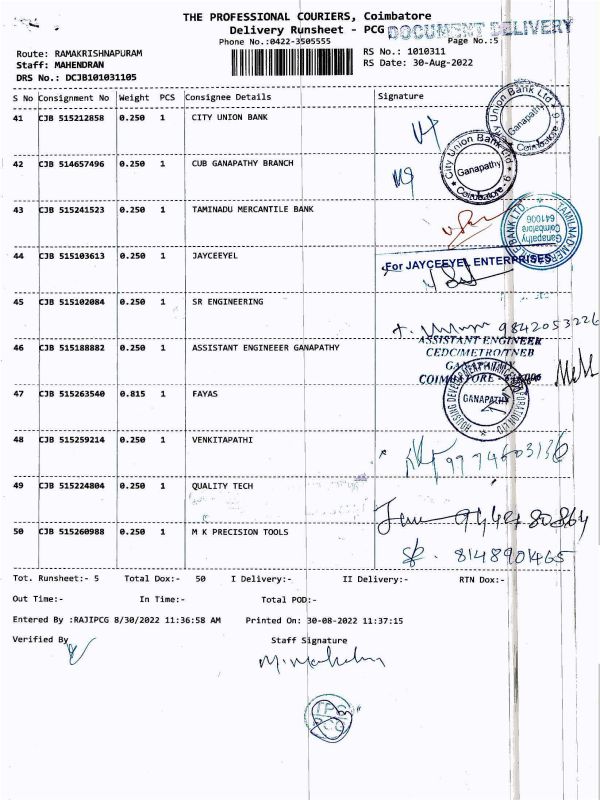 THE PROFESSIONAL COURIERS, Coimbatore
Delivery Runsheet - PCG
DOCUMENT DELIVERY
Phone No.:0422-3505555
Page No.:5
Route: RAMAKRISHNAPURAM
RS No.: 1010311
Staff: MAHENDRAN
RS Date: 30-Aug-2022
DRS No.: DCJB101031105
S No Consignment No Weight PCS Consignee Details Signature
41 CJB 515212858 0.250 1 CITY UNION BANK
City Union Bank Ltd Ganapathy Coimbatore
42 CJB 514657496 0.250 1 CUB GANAPATHY BRANCH
City Union Bank Ltd Ganapathy Coimbatore
43 CJB 515241523 0.250 1 TAMINADU MERCANTILE BANK
Ganapathy Coimbatore 641006
44 CJB 515103613 0.250 1 JAYCEEYEL
For JAYCEEYEL ENTERPRISES
45 CJB 515102084 0.250 1 SR ENGINEERING
9842053226
46 CJB 515188882 0.250 1 ASSISTANT ENGINEEER GANAPATHY
ASSISTANT ENGINEER
CEDC/METRO/TNEB
47 CJB 515263540 0.815 1 FAYAS
GANAPATHY
48 CJB 515259214 0.250 1 VENKITAPATHI
49 CJB 515224804 0.250 1 QUALITY TECH
50 CJB 515260988 0.250 1 M K PRECISION TOOLS
8148901465
Tot. Runsheet:- 5 Total Dox:- 50 I Delivery:- II Delivery:- RTN Dox:-
Out Time:- In Time:- Total POD:-
Entered By :RAJIPCG 8/30/2022 11:36:58 AM Printed On: 30-08-2022 11:37:15
Verified By Staff Signature
TPC
PCG